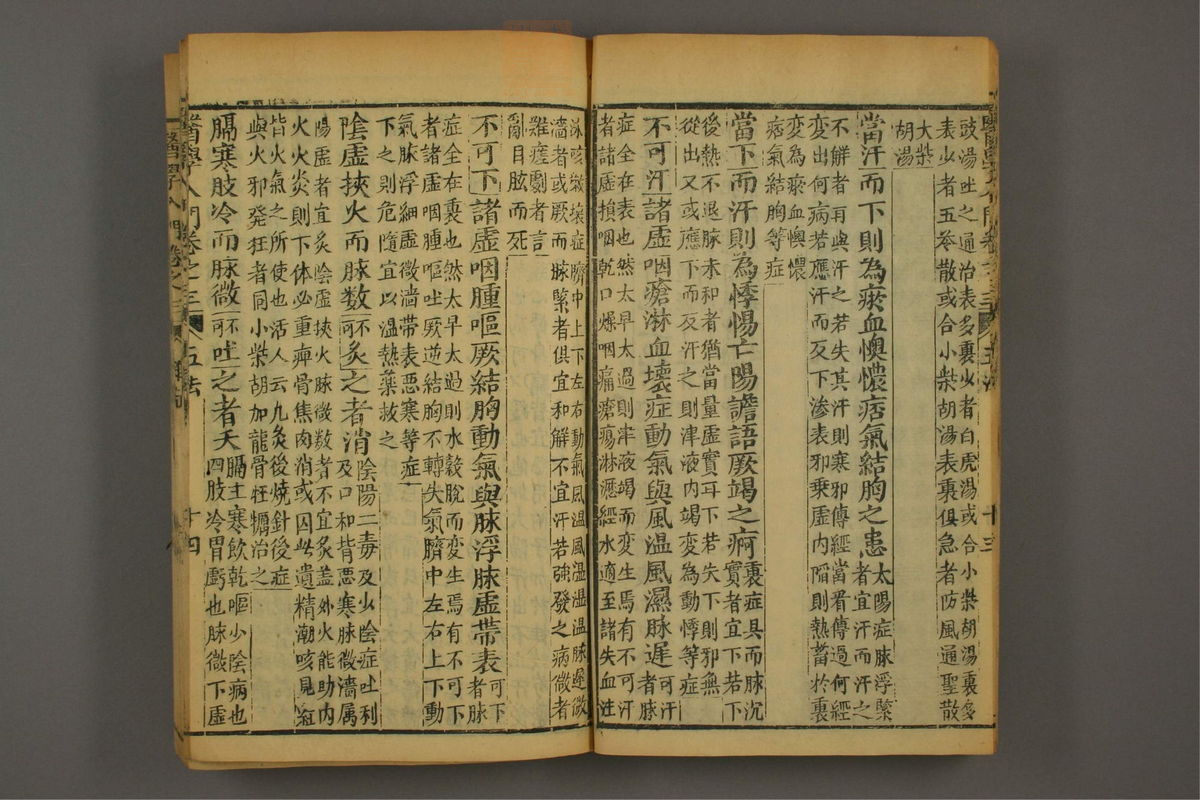 豉湯吐之通治表多裏少者白虎湯或合小柴胡湯裏多
表少者五苓散或合小柴胡湯表裏俱急者防風通聖散
大柴
胡湯
當汗而下則為瘀血懊憹痞氣結胸之患太陽症脉浮緊
者宜汗而汗之
不解者再與汗之若失其汗則寒邪傳經當看傳過何經
變出何病若應汗而反下滲表邪乗虛内陥則熱蓄於裏
變為瘀血懊憹
痞氣結胸等症
當下而汗則為悸惕亡陽譫語厥竭之痾裏症具而脉沉
實者宜下若下
後熱不退脉未和者猶當量虛實耳下若失下則邪無
從出又或應下而反汗之則津液内竭變為動悸等症
不可汗諸虛咽瘡淋血壞症動氣與風溫風濕脉遲可汗
者脉
症全在表也然太早太過則津液竭而変生焉有不可汗
者諸虛損咽乾口燥咽痛瘡瘍淋瀝經水適至諸失血注
氷咳嗽壞症臍中上下左右動氣風温風温温脉遲微
濇者或厥而脉緊者俱宜和解不宜汗若強發之病微者
難瘥劇者言
亂目眩而死
不可下諸虛咽腫嘔厥結胸動氣與脉浮脉虛帶表可下
者脉
症全在裏也然太早太過則水穀脫而変生焉有不可下
者諸虛咽腫嘔吐厥逆結胸不轉失氣臍中左右上下動
氣脉浮細虛微濇帶表惡寒等症
下之則危隨宜以溫熱藥救之
陰虛挾火而脉数不可灸之者消陰陽二毒及少陰症吐利
及口和背惡寒脉微濇属
陽虛者宜灸陰虛挾火脉微数者不宜灸盖外火能助内
火火炎則下体必重痺骨焦肉消或因此遺精潮咳見紅
皆火氣之所使也活人云凡灸後燒針後症
與火邪発狂者同小柴胡加龍骨牡蠣治之
膈寒肢冷而脉微不可吐之者夭膈主寒飲乾嘔少陰病也
四肢冷胃虧也脉微下虛
醫學入門卷之三 五法 十四
十三